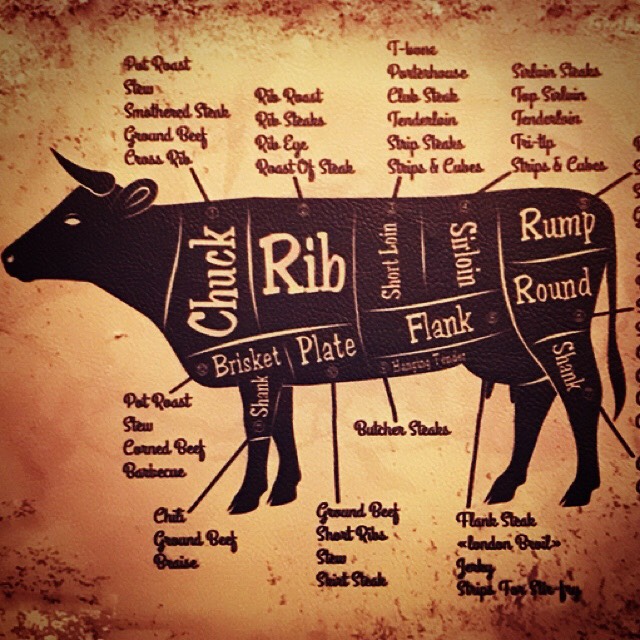 Pot Roast
Stew
Smothered Steak
Ground Beef
Cross Rib
Rib Roast
Rib Steaks
Rib Eye
Roast Of Steak
T-bone
Porterhouse
Club Steak
Tenderloin
Strip Steaks
Strips & Cubes
Sirloin Steaks
Top Sirloin
Tenderloin
Tri-tip
Strips & Cubes
Chuck
Rib
Short Loin
Sirloin
Rump
Round
Brisket
Plate
Flank
Hanging Tender
Shank
Shank
Pot Roast
Stew
Corned Beef
Barbecue
Butcher Steaks
Chili
Ground Beef
Braise
Ground Beef
Short Ribs
Stew
Skirt Steak
Flank Steak
«london Broil»
Jerky
Strips For Stir-fry